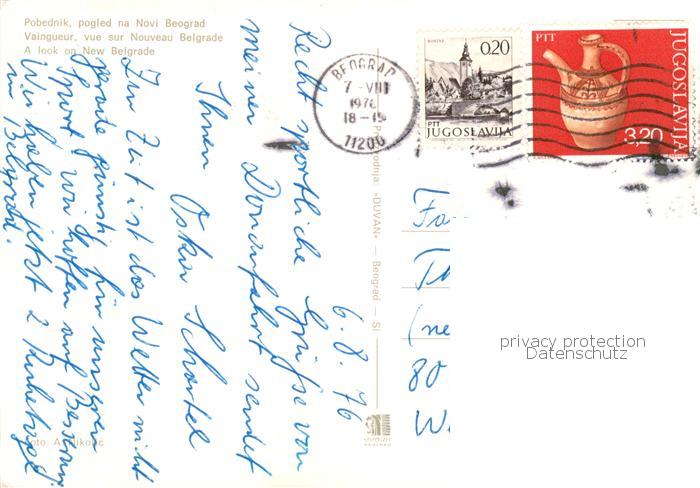 Pobednik, pogled na Novi Beograd
Vainqueur, vue sur Nouveau Belgrade
A look on New Belgrade
BEOGRAD
7-VIII
1976
18-19
11200
0,20
PTT
JUGOSLAVIJA
PTT
JUGOSLAVIJA
3,20
6.8.76
Recht sportliche Grüße von
meiner Donaufahrt sendet
Ihnen Oskar
Zur Zeit ist das Wetter nicht
gerade günstig für unseren
Sport. Wir hoffen auf Besserung.
Wir haben jetzt 2 Ruhetage
in Belgrad.
"DUVAN" — Beograd — SI
Fa
(ne
80
W
privacy protection
Datenschutz